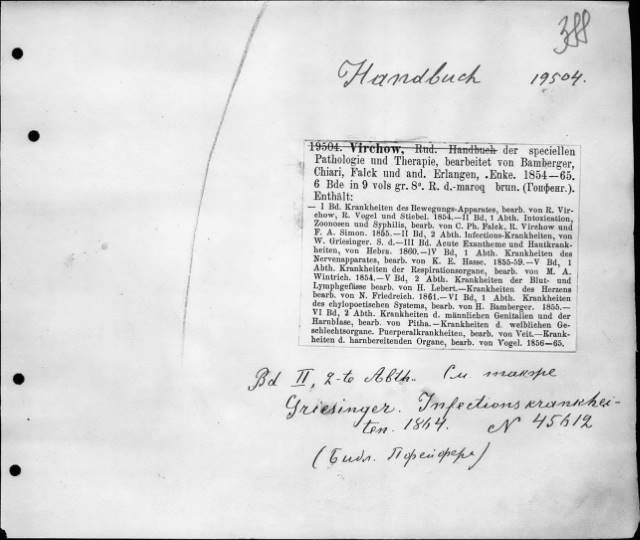 388
Handbuch 19504.
19504. Virchow, Rud. Handbuch der speciellen
Pathologie und Therapie, bearbeitet von Bamberger,
Chiari, Falck und and. Erlangen, .Enke. 1854—65.
6 Bde in 9 vols gr. 8°. R. d.-maroq brun. (Гонфенг.).
Enthält:
— I Bd. Krankheiten des Bewegungs-Apparates, bearb. von R. Vir-
chow, R. Vogel und Stiebel. 1854.—II Bd, 1 Abth. Intoxication,
Zoonosen und Syphilis, bearb. von C. Ph. Falck, R. Virchow und
F. A. Simon. 1855.—II Bd, 2 Abth. Infections-Krankheiten, von
W. Griesinger. S. d.—III Bd. Acute Exantheme und Hautkrank-
heiten, von Hebra. 1860.—IV Bd, 1 Abth. Krankheiten des
Nervenapparates, bearb. von K. E. Hasse. 1855-59.—V Bd, 1
Abth. Krankheiten der Respirationsorgane, bearb. von M. A.
Wintrich. 1854.—V Bd, 2 Abth. Krankheiten der Blut- und
Lymphgefässe bearb. von H. Lebert.—Krankheiten des Herzens
bearb. von N. Friedreich. 1861.—VI Bd, 1 Abth. Krankheiten
des chylopoetischen Systems, bearb. von H. Bamberger. 1855.—
VI Bd, 2 Abth. Krankheiten d. männlichen Genitalien und der
Harnblase, bearb. von Pitha.—Krankheiten d. weiblichen Ge-
schlechtsorgane. Puerperalkrankheiten, bearb. von Veit.—Krank-
heiten d. harnbereitenden Organe, bearb. von Vogel. 1856—65.
Bd II, 2-te Abth. См. также
Griesinger. Infectionskrankhei-
ten. 1864. N 45612
(Библ. Пфейфера)